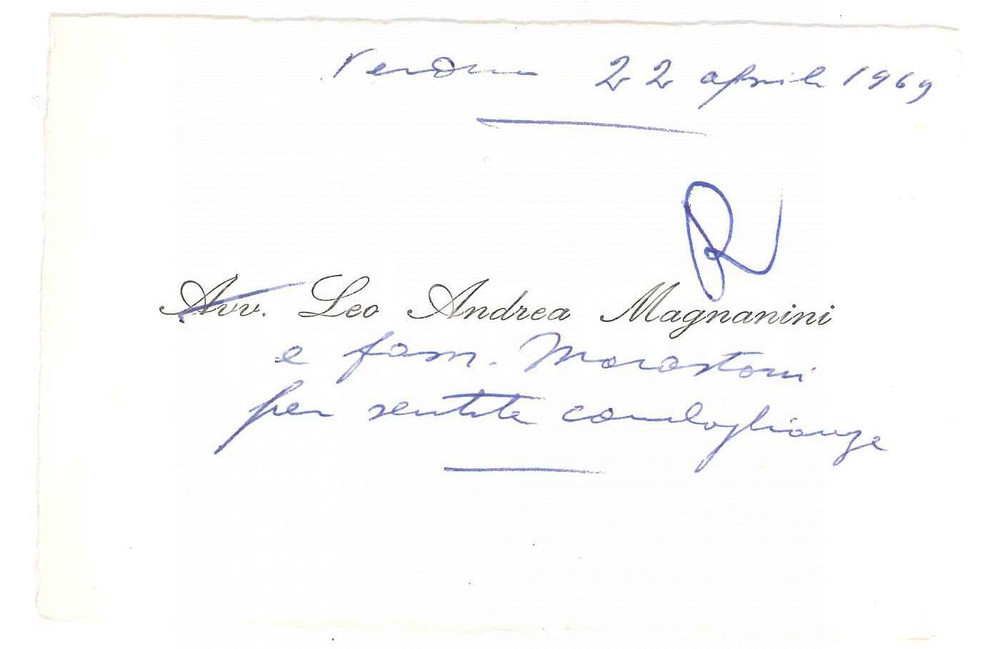 Verona 22 aprile 1969
R
Avv. Leo Andrea Magnanini
e fam. Morastoni
per sentite condoglianze